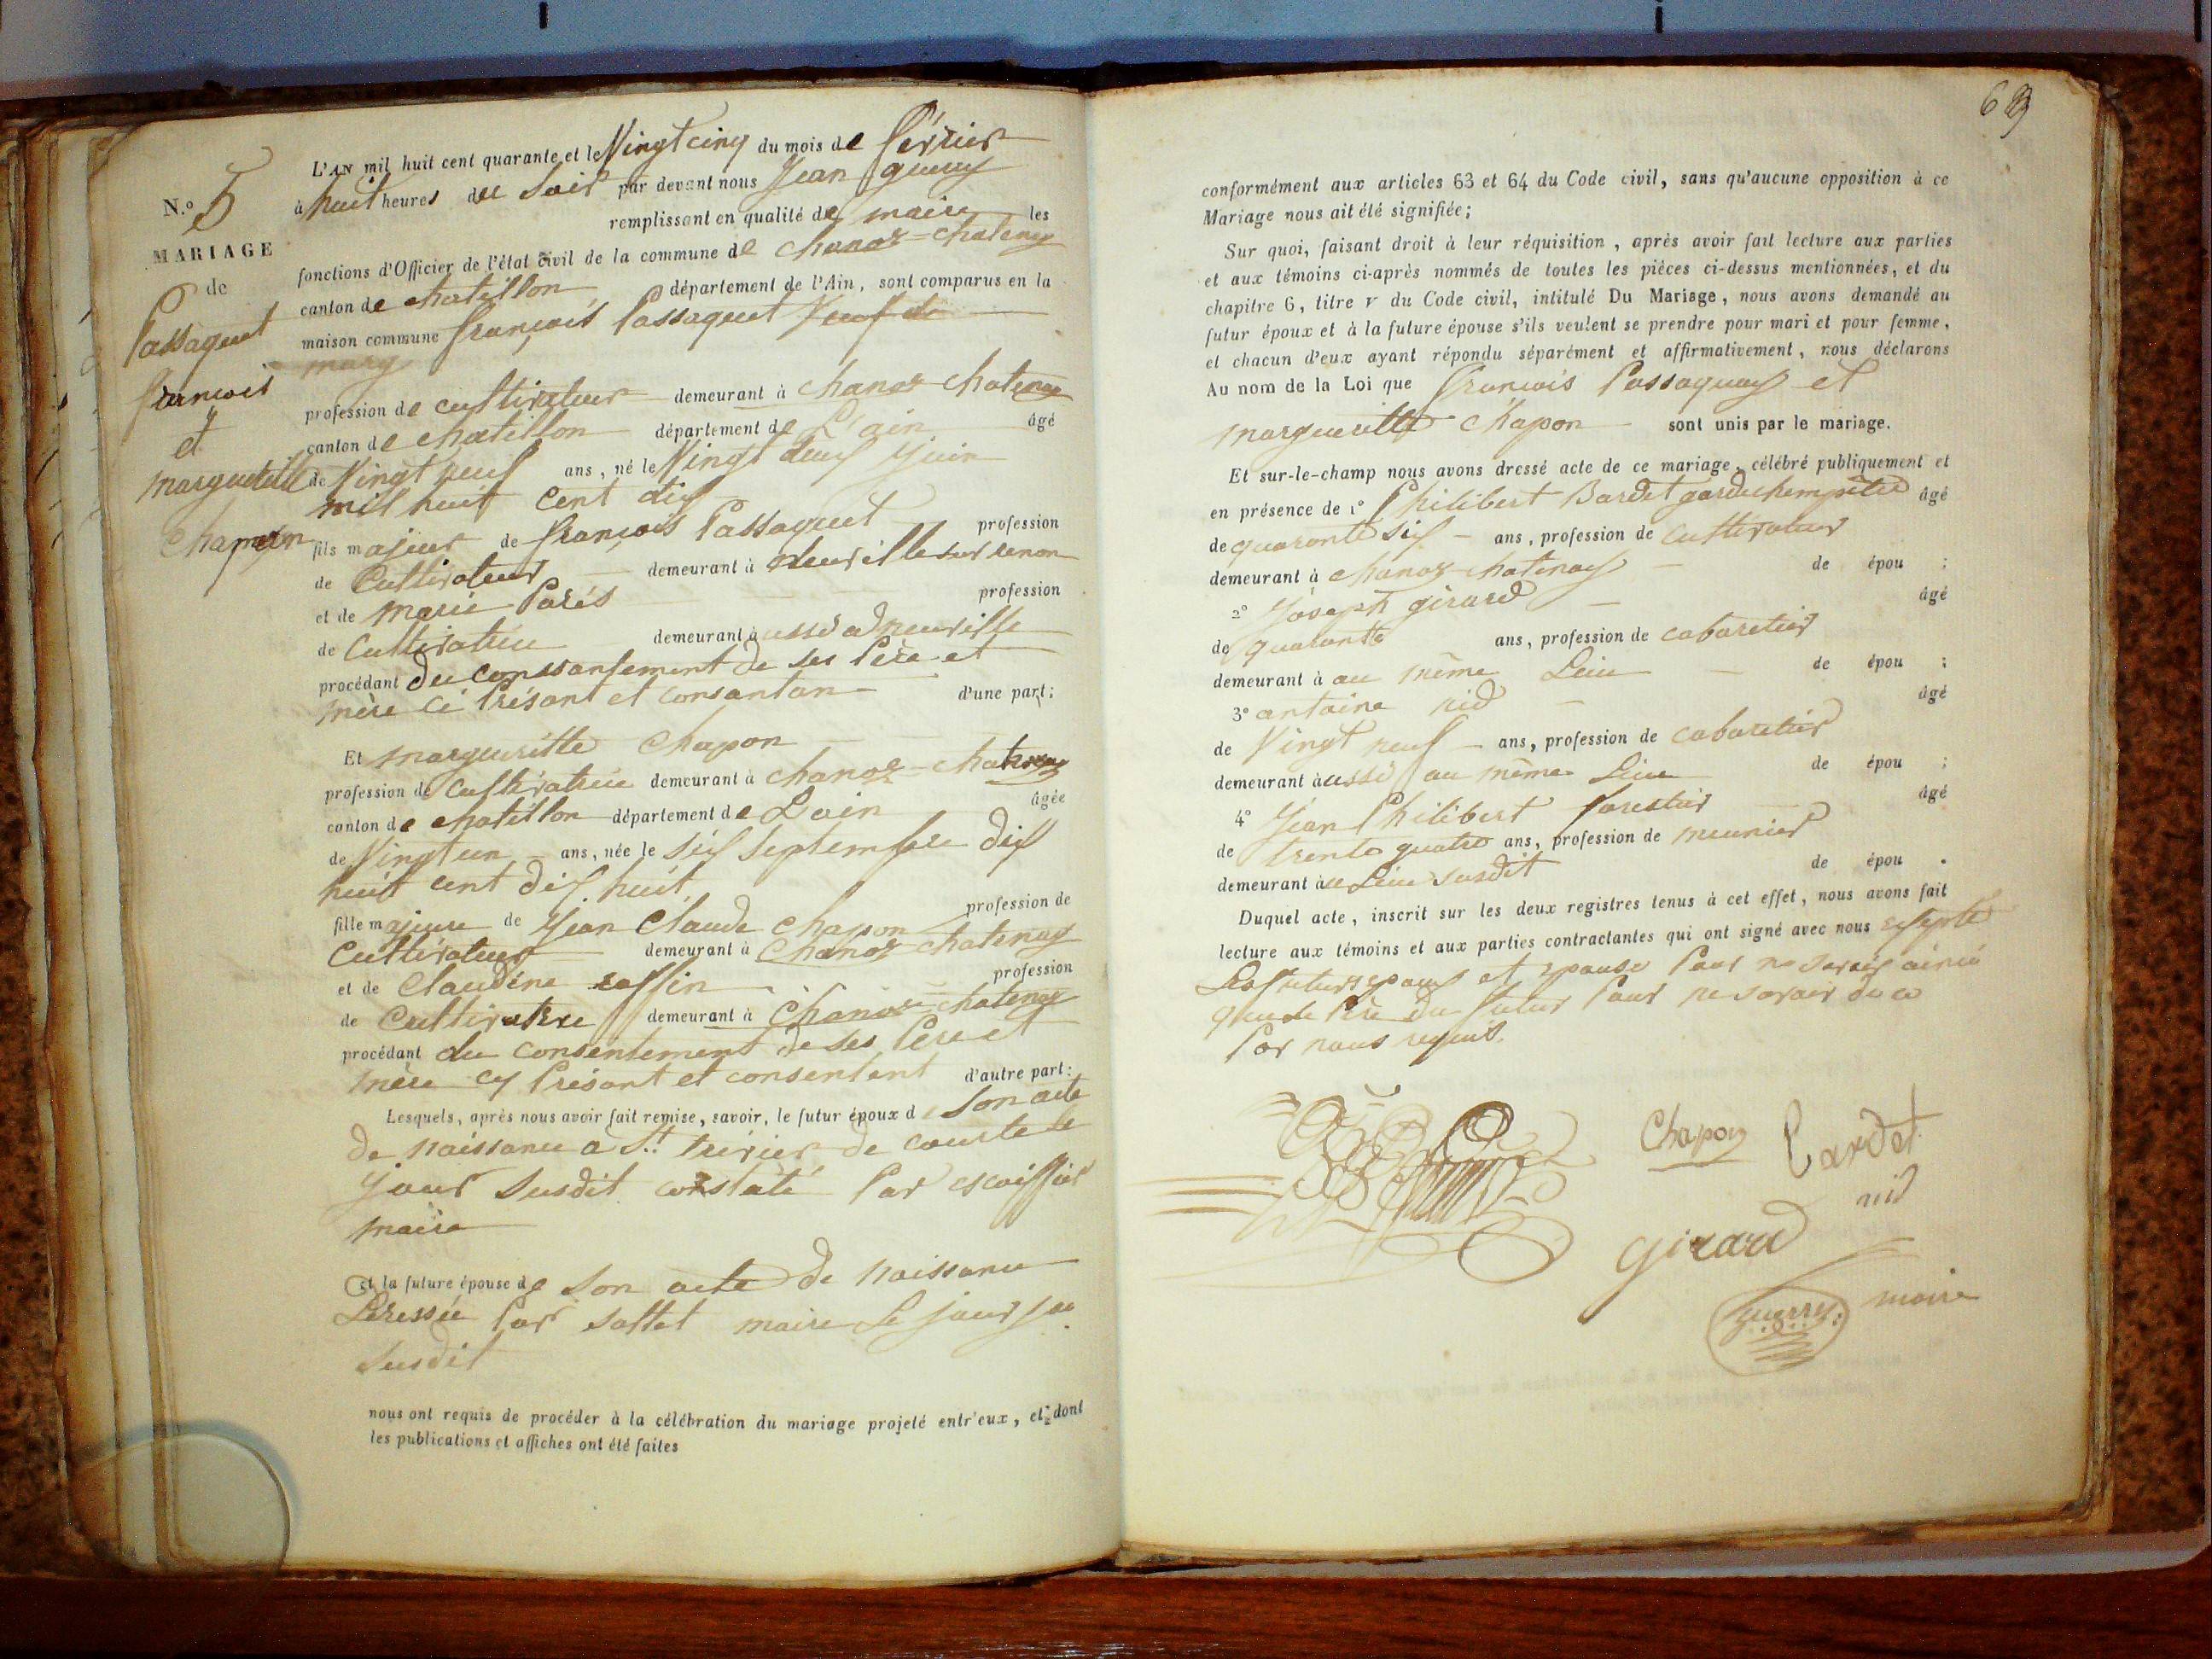 N.o 5
MARIAGE
de
Passaquet
francois
et
margueritte
Chapon
L'AN mil huit cent quarante et le Vingt cinq du mois de février
à huit heures du soir par devant nous Jean guerry
remplissant en qualité de maire les
fonctions d'Officier de l'état civil de la commune de chanoz-chatenay
canton de chatillon département de l'Ain, sont comparus en la
maison commune françois Passaquet
profession de cultivateur demeurant à chanoz chatenay
canton de chatillon département de L'ain âgé
de Vingt neuf ans, né le Vingt deux Juin
mil huit cent dix
fils majeur de françois Passaquet profession
de Cultivateur demeurant à neuville sur renon
et de marie Parés profession
de Cultivatrice demeurant à ussi a neuville
procédant du conssantement de ses Père et
mère ci Présant et consantan d'une part;
Et margueritte Chapon
profession de Cultivatrice demeurant à chanoz-chatenay
canton de chatillon département de L'ain âgée
de Vingt un ans, née le six septembre dix
huit cent dix huit
fille majeure de Jean Claude Chapon profession de
Cultivateur demeurant à Chanoz chatenay
et de Claudine raffin profession
de Cultivatrice demeurant à Chanoz chatenay
procédant du consentement de ses Père et
mère cy Présant et consentant d'autre part:
Lesquels, après nous avoir fait remise, savoir, le futur époux de son acte
de naissance a St. trivier de courte le
Jour susdit constaté Par escoiffier
maire
et la future épouse de son acte de naissance
Dressée Par sattet maire le jour
susdit
nous ont requis de procéder à la célébration du mariage projeté entr'eux, et dont
les publications et affiches ont été faites
69
conformément aux articles 63 et 64 du Code civil, sans qu'aucune opposition à ce
Mariage nous ait été signifiée;
Sur quoi, faisant droit à leur réquisition, après avoir fait lecture aux parties
et aux témoins ci-après nommés de toutes les pièces ci-dessus mentionnées, et du
chapitre 6, titre v du Code civil, intitulé Du Mariage, nous avons demandé au
futur époux et à la future épouse s'ils veulent se prendre pour mari et pour femme,
et chacun d'eux ayant répondu séparément et affirmativement, nous déclarons
Au nom de la Loi que françois Passaquay et
margueritte Chapon sont unis par le mariage.
Et sur-le-champ nous avons dressé acte de ce mariage, célébré publiquement et
en présence de 1o Philibert Bardet garde champêtre âgé
de quarante six ans, profession de Cultivateur
demeurant à chanoz chatenay de épou ;
2o Joseph girard âgé
de quarante ans, profession de cabaretier
demeurant à au même Lieu de épou ;
3o antoine nid âgé
de Vingt neuf ans, profession de cabaretier
demeurant à ussi au même Lieu de épou ;
4o Jean Philibert forestier âgé
de trente quatre ans, profession de meunier
demeurant à Lieu susdit de épou .
Duquel acte, inscrit sur les deux registres tenus à cet effet, nous avons fait
lecture aux témoins et aux parties contractantes qui ont signé avec nous excepté
Les futurs epoux et epouse Pour ne savoir ainsi
que le Père du futur Pour ne savoir de ce
Par nous requis.
Chapon
Bardet
nid
girard
guerry maire